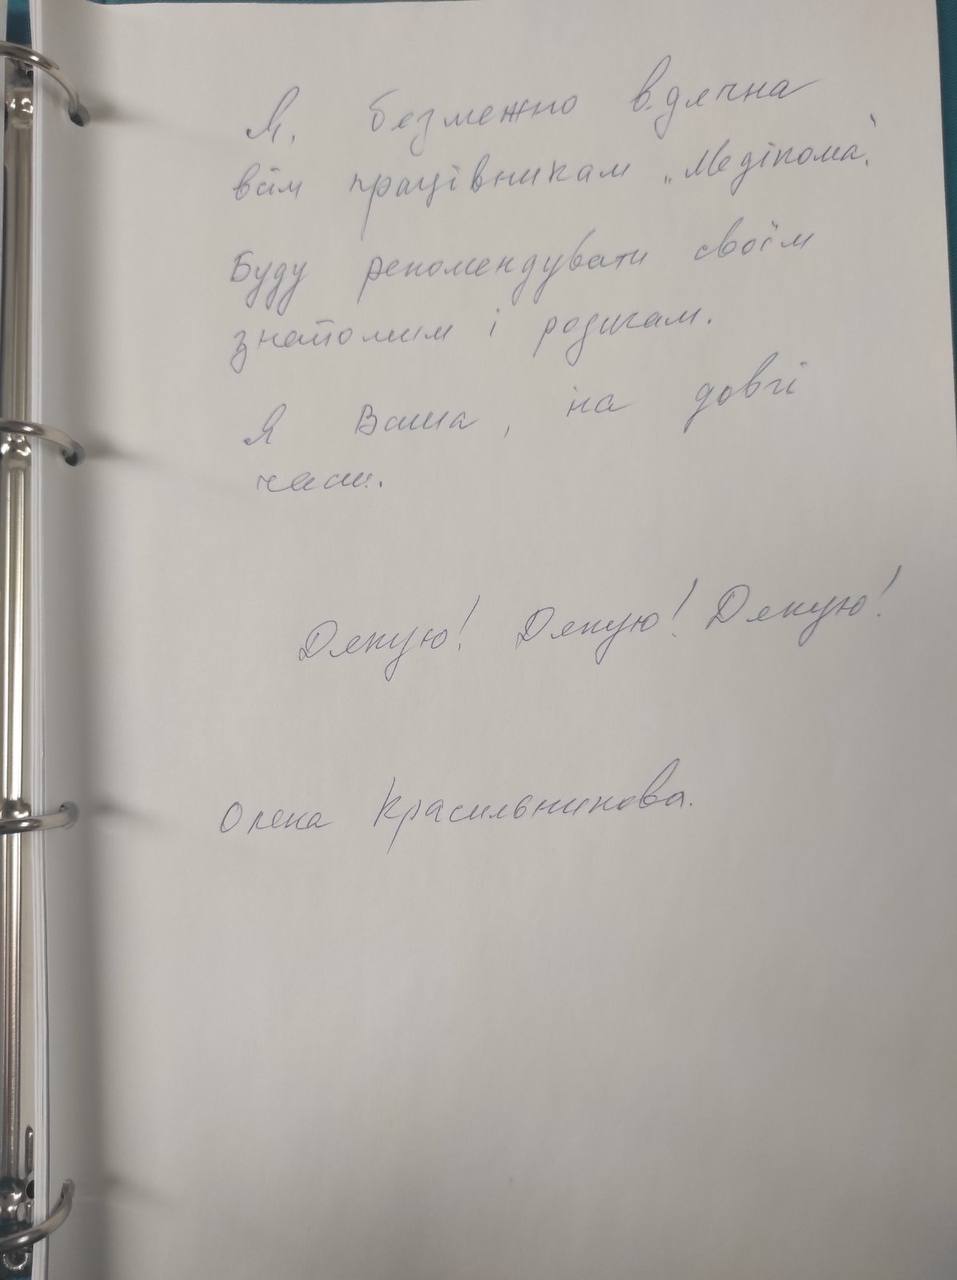 Я, безмежно вдячна
всім працівникам „Медікома".
Буду рекомендувати своїм
знайомим і родичам.
Я Ваша, на довгі
часи.
Дякую! Дякую! Дякую!
Олена Красильникова.